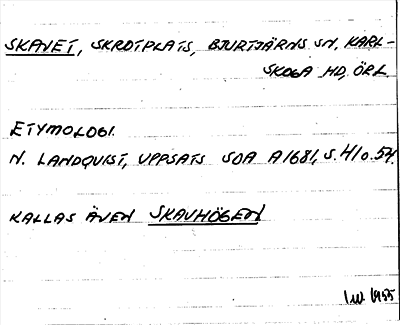 SKAVET, SKROTPLATS, BJURTJÄRNS SN, KARL-
SKOGA HD, ÖRL.
ETYMOLOGI.
N. LANDQUIST, UPPSATS SOA A1681, S. 41 o. 54.
KALLAS ÄVEN SKAVHÖGEN
1955